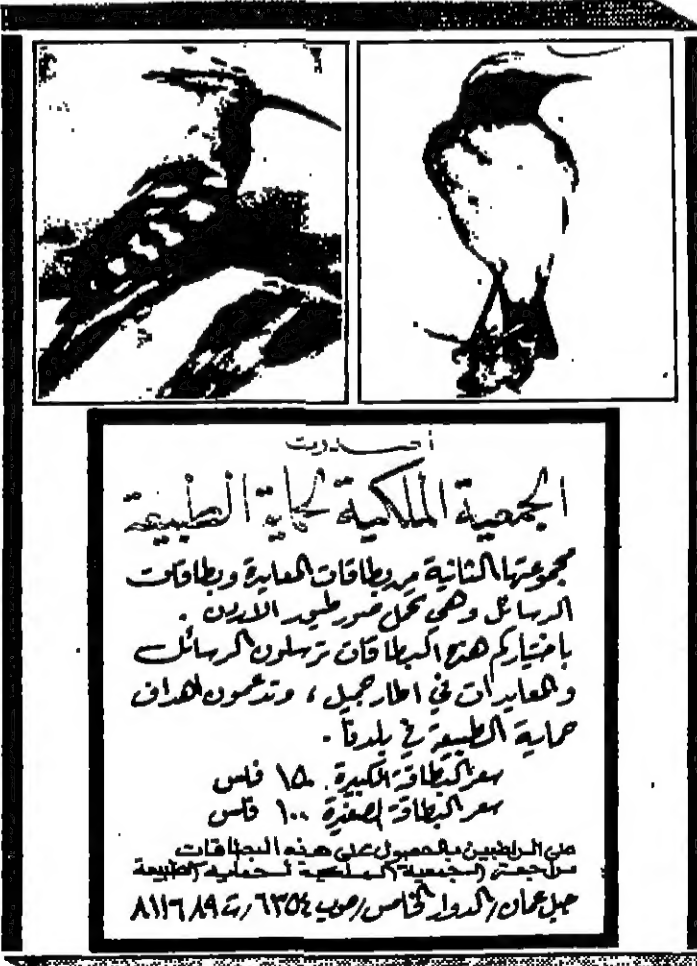 أصدرت
الجمعية الملكية لحماية الطبيعة
مجموعتها الثانية من بطاقات المعايدة وبطاقات
الرسائل وهي تحمل صور طيور الاردن .
باختياركم هذه البطاقات ترسلون الرسائل
والمعايدات في اطار جميل ، وتدعمون اهداف
حماية الطبيعة في بلدنا .
سعر البطاقة الكبيرة ١٥٠ فلس
سعر البطاقة الصغيرة ١٠٠ فلس
على الراغبين بالحصول على هذه البطاقات
مراجعة الجمعية الملكية لحماية الطبيعة
جبل عمان / الدوار الخامس / ص.ب ٦٣٥٤ / ت ٨١١٦٨٩